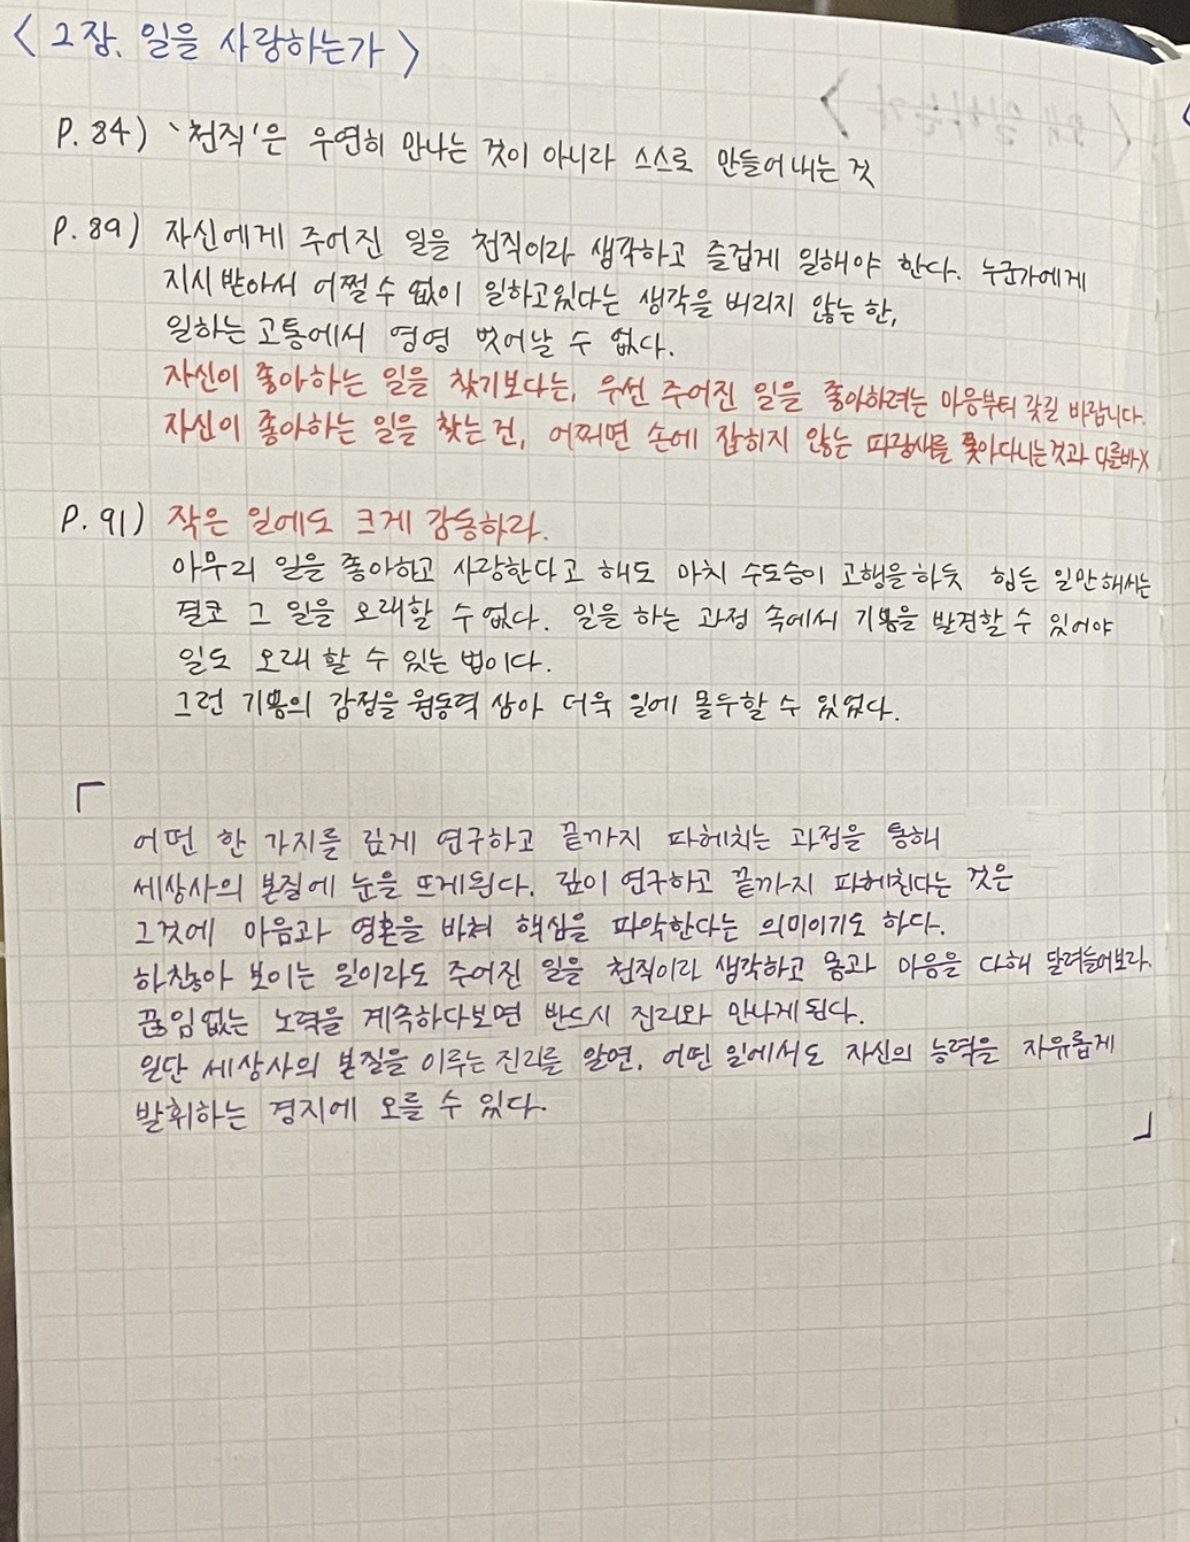 < 2장. 일을 사랑하는가 >
P. 84) '천직'은 우연히 만나는 것이 아니라 스스로 만들어 내는 것
P. 89) 자신에게 주어진 일을 천직이라 생각하고 즐겁게 일해야 한다. 누군가에게
지시 받아서 어쩔 수 없이 일하고있다는 생각을 버리지 않는 한,
일하는 고통에서 영영 벗어날 수 없다.
자신이 좋아하는 일을 찾기보다는, 우선 주어진 일을 좋아하려는 마음부터 갖길 바랍니다.
자신이 좋아하는 일을 찾는 건, 어쩌면 손에 잡히지 않는 파랑새를 쫓아다니는것과 다를바X
P. 91) 작은 일에도 크게 감동하라.
아무리 일을 좋아하고 사랑한다고 해도 마치 수도승이 고행을 하듯 힘든 일만 해서는
결코 그 일을 오래할 수 없다. 일을 하는 과정 속에서 기쁨을 발견할 수 있어야
일도 오래 할 수 있는 법이다.
그런 기쁨의 감정을 원동력 삼아 더욱 일에 몰두할 수 있었다.
「
어떤 한 가지를 깊게 연구하고 끝까지 파헤치는 과정을 통해
세상사의 본질에 눈을 뜨게된다. 깊이 연구하고 끝까지 파헤친다는 것은
그것에 마음과 영혼을 바쳐 핵심을 파악한다는 의미이기도 하다.
하찮아 보이는 일이라도 주어진 일을 천직이라 생각하고 몸과 마음을 다해 달려들어보라.
끊임없는 노력을 계속하다보면 반드시 진리와 만나게된다.
일단 세상사의 본질을 이루는 진리를 알면, 어떤 일에서도 자신의 능력을 자유롭게
발휘하는 경지에 오를 수 있다.
」